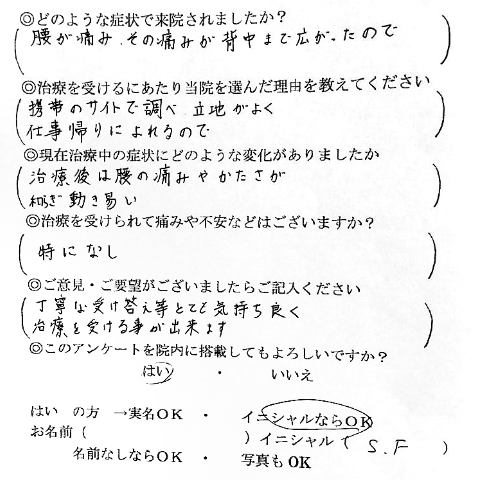 ◎どのような症状で来院されましたか？
腰が痛み、その痛みが背中まで広がったので
◎治療を受けるにあたり当院を選んだ理由を教えてください
携帯のサイトで調べ、立地がよく
仕事帰りによれるので
◎現在治療中の症状にどのような変化がありましたか
治療後は腰の痛みやかたさが
和らぎ動き易い
◎治療を受けられて痛みや不安などはございますか？
特になし
◎ご意見・ご要望がございましたらご記入ください
丁寧な受け答え等とても気持ち良く
治療を受ける事が出来ます
◎このアンケートを院内に搭載してもよろしいですか？
はい ・ いいえ
はい の方 →実名OK ・ イニシャルならOK
お名前（ ）イニシャル（ S.F ）
名前なしならOK ・ 写真もOK